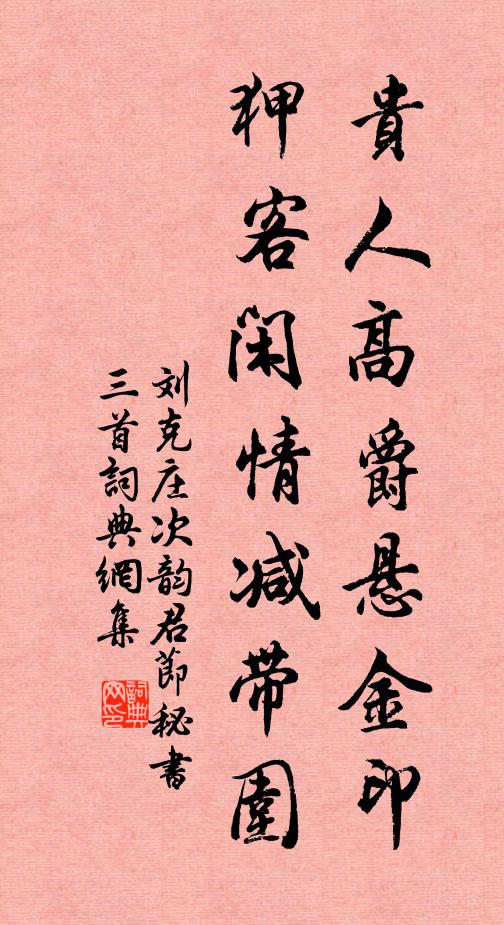 貴人高爵悬金印
狎客闲情减带圍
刘克庄次韵君節秘書
三首詞典網集
詞典网印